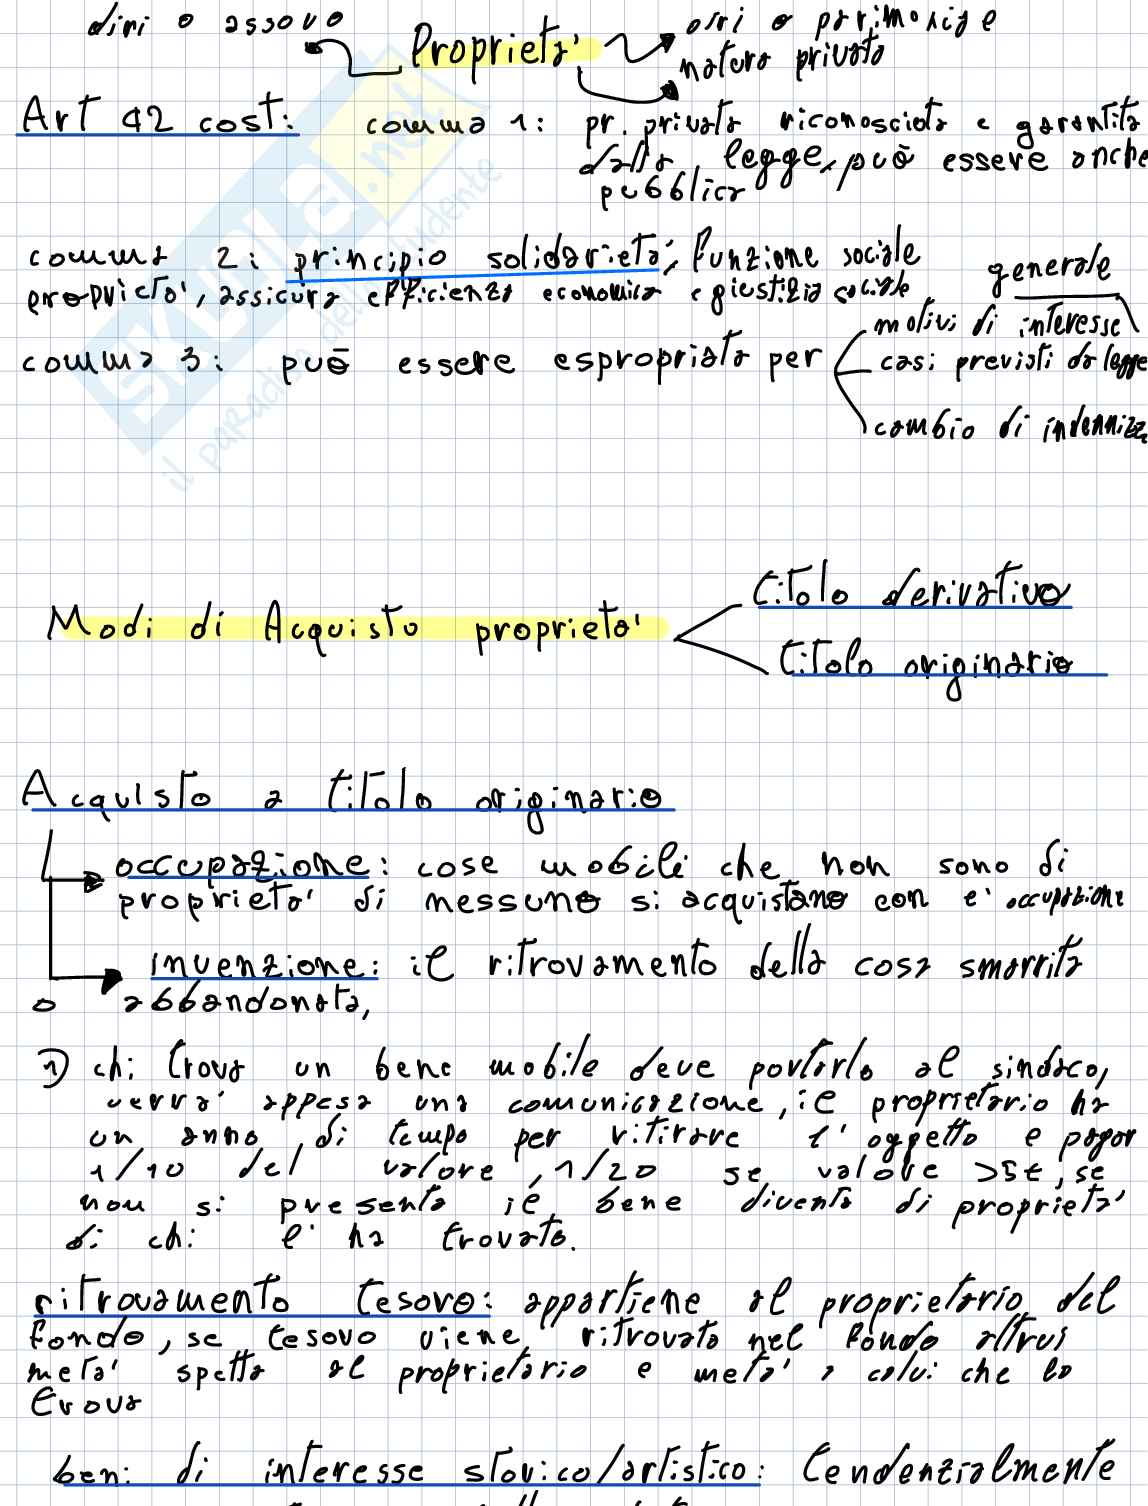 diri o assovo
Proprietà'
natura privata
Art 42 cost: comma 1: pr. privata riconosciuta e garantita
dalla legge, può essere anche
pubblica
comma 2: principio solidarietà; funzione sociale
proprietà, assicura efficienza economica e giustizia sociale
generale
motivi di interesse
comma 3: può essere espropriata per
casi previsti da legge
cambio di indennizz
Modi di Acquisto proprietà'
titolo derivativo
titolo originario
Acquisto a titolo originario
occupazione: cose mobili che non sono di
proprietà' di nessuno si acquistano con l'occupazione
invenzione: il ritrovamento della cosa smarrita
o abbandonata,
1) chi trova un bene mobile deve portarlo al sindaco,
verrà' appesa una comunicazione, il proprietario ha
un anno di tempo per ritirare l'oggetto e pagar
1/10 del valore, 1/20 se valore >5€, se
non si presenta il bene diventa di proprietà'
di chi l'ha trovato.
ritrovamento tesoro: appartiene al proprietario del
fondo, se tesoro viene ritrovato nel fondo altrui
metà' spetta al proprietario e metà' a colui che lo
trova
beni di interesse storico/artistico: tendenzialmente
SKUOLA.net
il paradiso dello studente